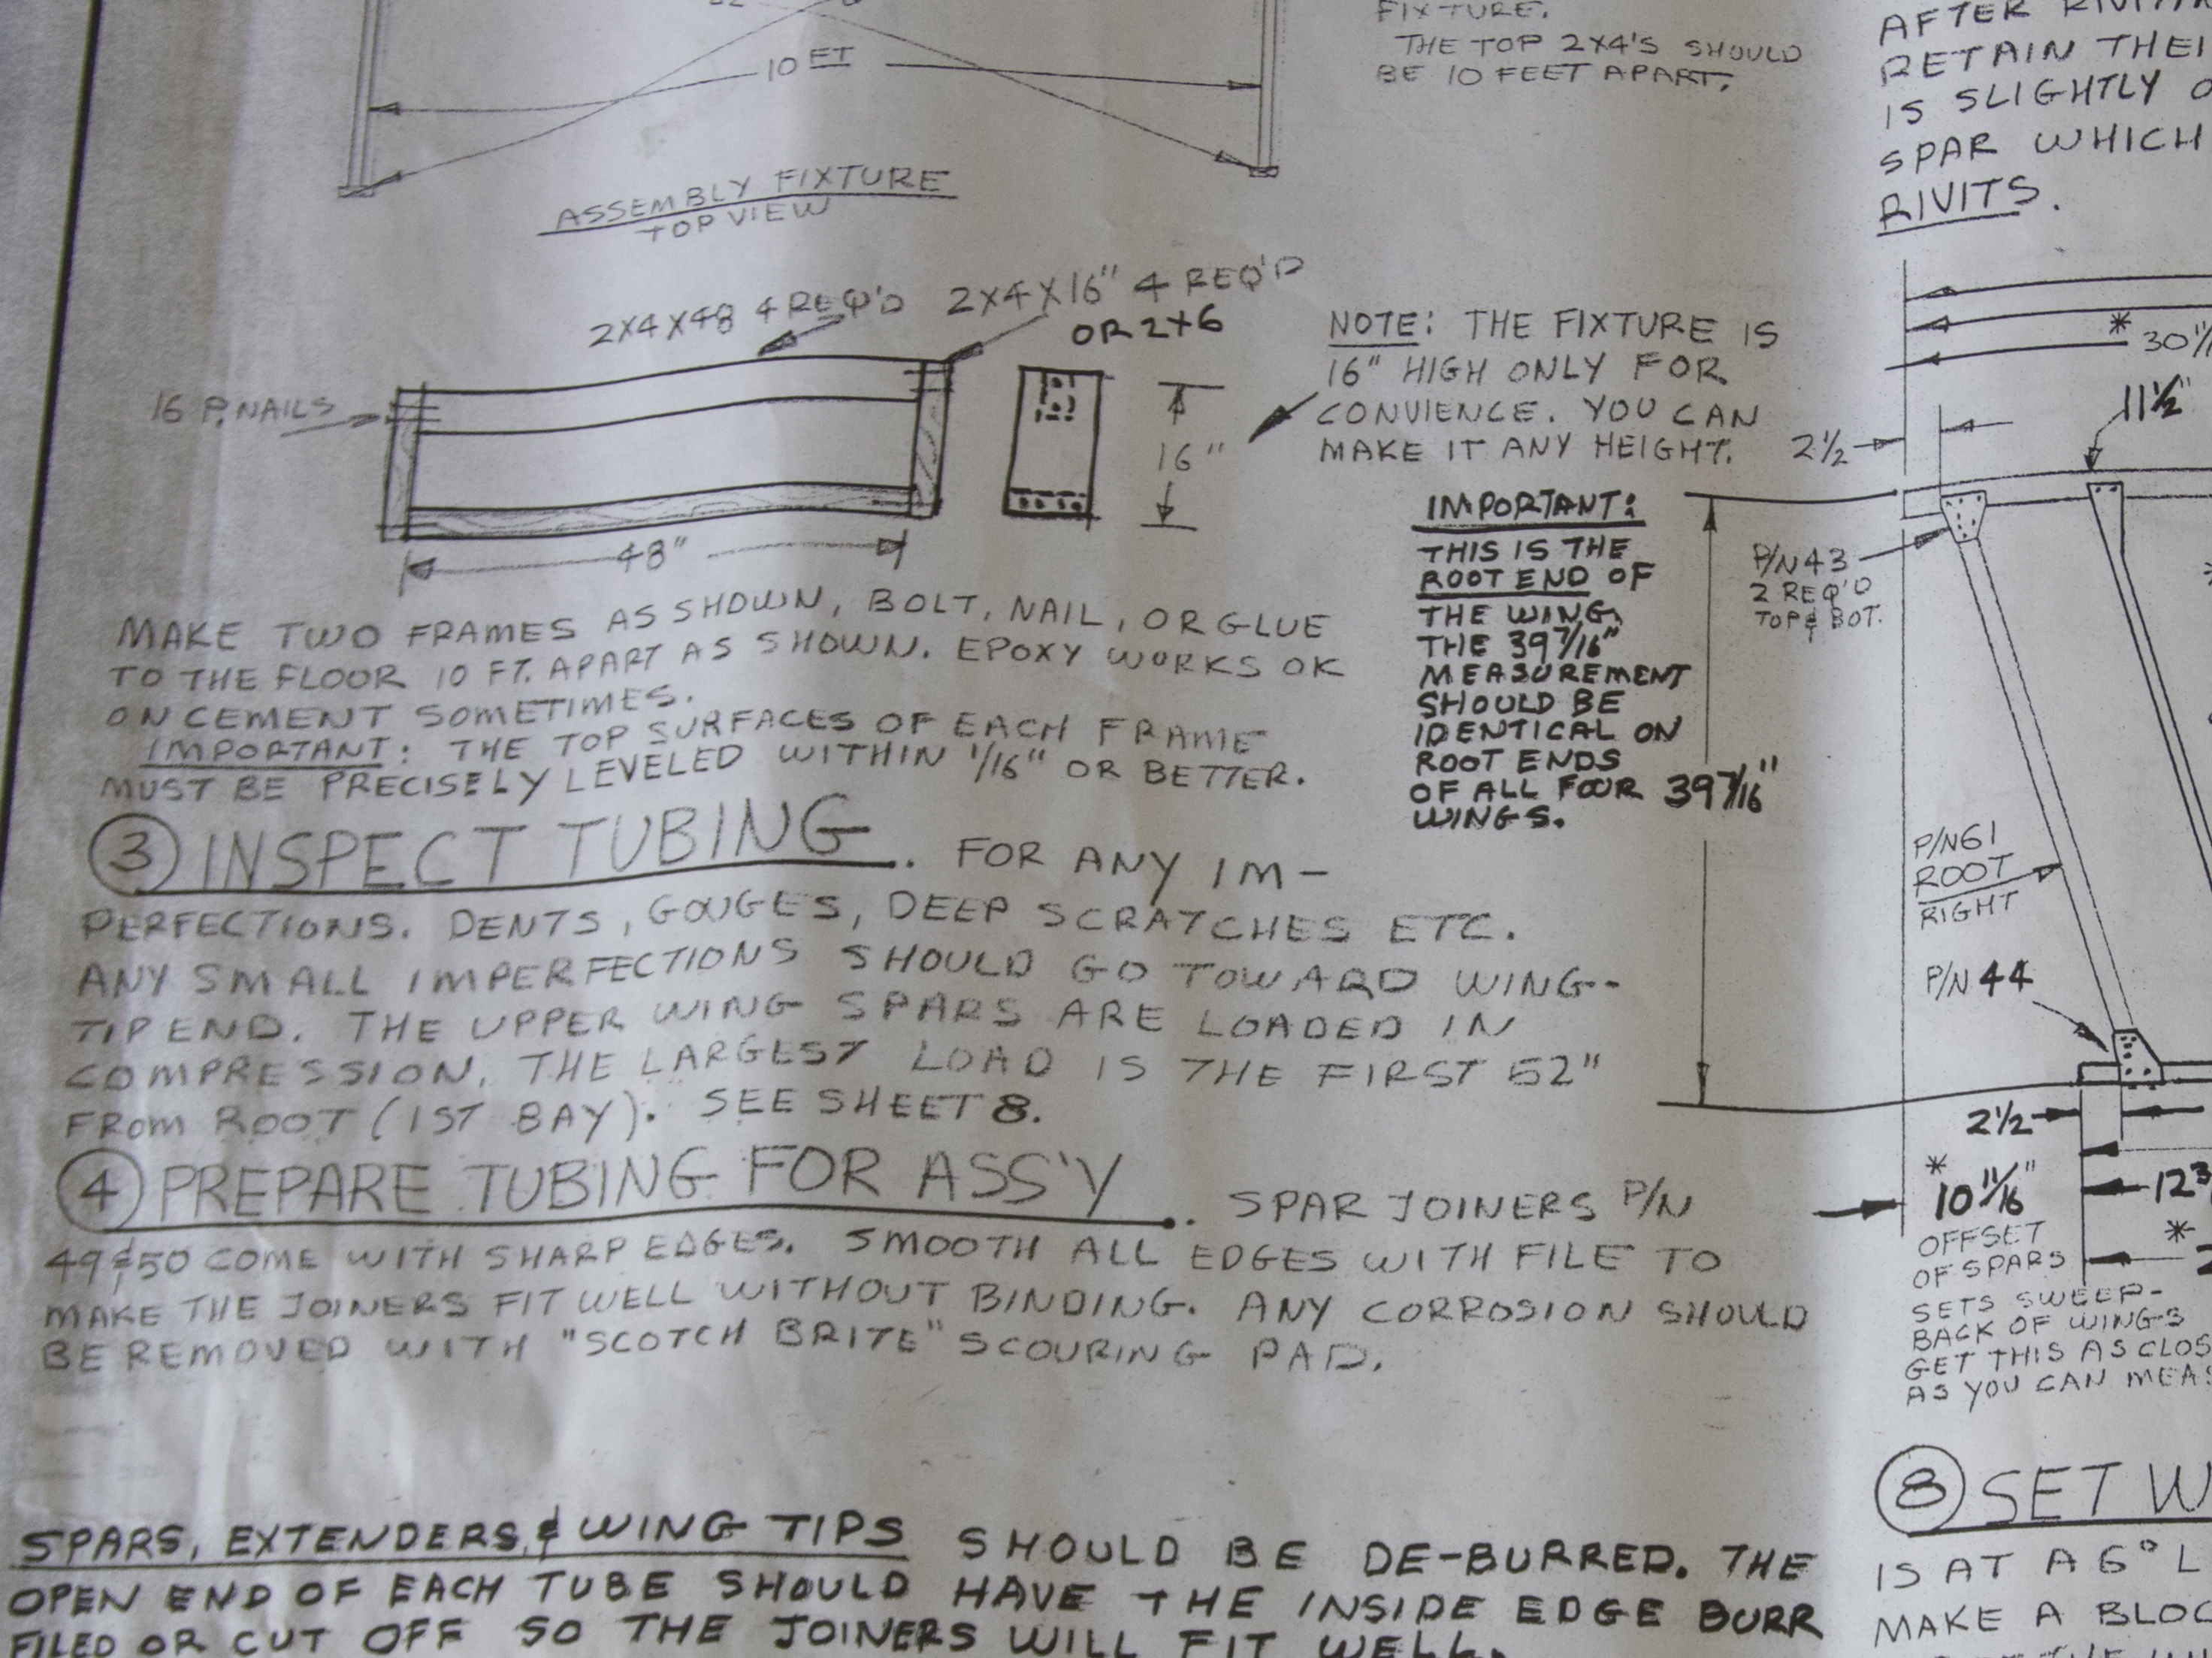 10 FT
FIXTURE.
THE TOP 2X4'S SHOULD
BE 10 FEET APART.
ASSEMBLY FIXTURE
TOP VIEW
2X4X48 4 REQ'D
2X4X16" 4 REQ'D
OR 2X6
16 P. NAILS
16"
48"
NOTE: THE FIXTURE IS
16" HIGH ONLY FOR
CONVIENCE. YOU CAN
MAKE IT ANY HEIGHT.
MAKE TWO FRAMES AS SHOWN, BOLT, NAIL, OR GLUE
TO THE FLOOR 10 FT. APART AS SHOWN. EPOXY WORKS OK
ON CEMENT SOMETIMES.
IMPORTANT: THE TOP SURFACES OF EACH FRAME
MUST BE PRECISELY LEVELED WITHIN 1/16" OR BETTER.
3 INSPECT TUBING. FOR ANY IM-
PERFECTIONS. DENTS, GOUGES, DEEP SCRATCHES ETC.
ANY SMALL IMPERFECTIONS SHOULD GO TOWARD WING-
TIP END. THE UPPER WING SPARS ARE LOADED IN
COMPRESSION. THE LARGEST LOAD IS THE FIRST 52"
FROM ROOT (1ST BAY). SEE SHEET 8.
4 PREPARE TUBING FOR ASS'Y. SPAR JOINERS P/N
49 & 50 COME WITH SHARP EDGES. SMOOTH ALL EDGES WITH FILE TO
MAKE THE JOINERS FIT WELL WITHOUT BINDING. ANY CORROSION SHOULD
BE REMOVED WITH "SCOTCH BRITE" SCOURING PAD.
SPARS, EXTENDERS, & WING TIPS SHOULD BE DE-BURRED. THE
OPEN END OF EACH TUBE SHOULD HAVE THE INSIDE EDGE BURR
FILED OR CUT OFF SO THE JOINERS WILL FIT WELL.
IMPORTANT:
THIS IS THE
ROOT END OF
THE WING,
THE 39 7/16"
MEASUREMENT
SHOULD BE
IDENTICAL ON
ROOT ENDS
OF ALL FOUR
WINGS.
39 7/16"
AFTER
RETAIN
IS SLIGHTLY
SPAR WHICH
RIVITS.
* 30
11 1/2"
2 1/2
P/N 43
2 REQ'D
TOP & BOT.
P/N 61
ROOT
RIGHT
P/N 44
2 1/2
*
10 11/16"
12
*
OFFSET
OF SPARS
SETS SWEEP-
BACK OF WINGS
GET THIS AS
AS YOU CAN
8 SET
IS AT A 6°
MAKE A